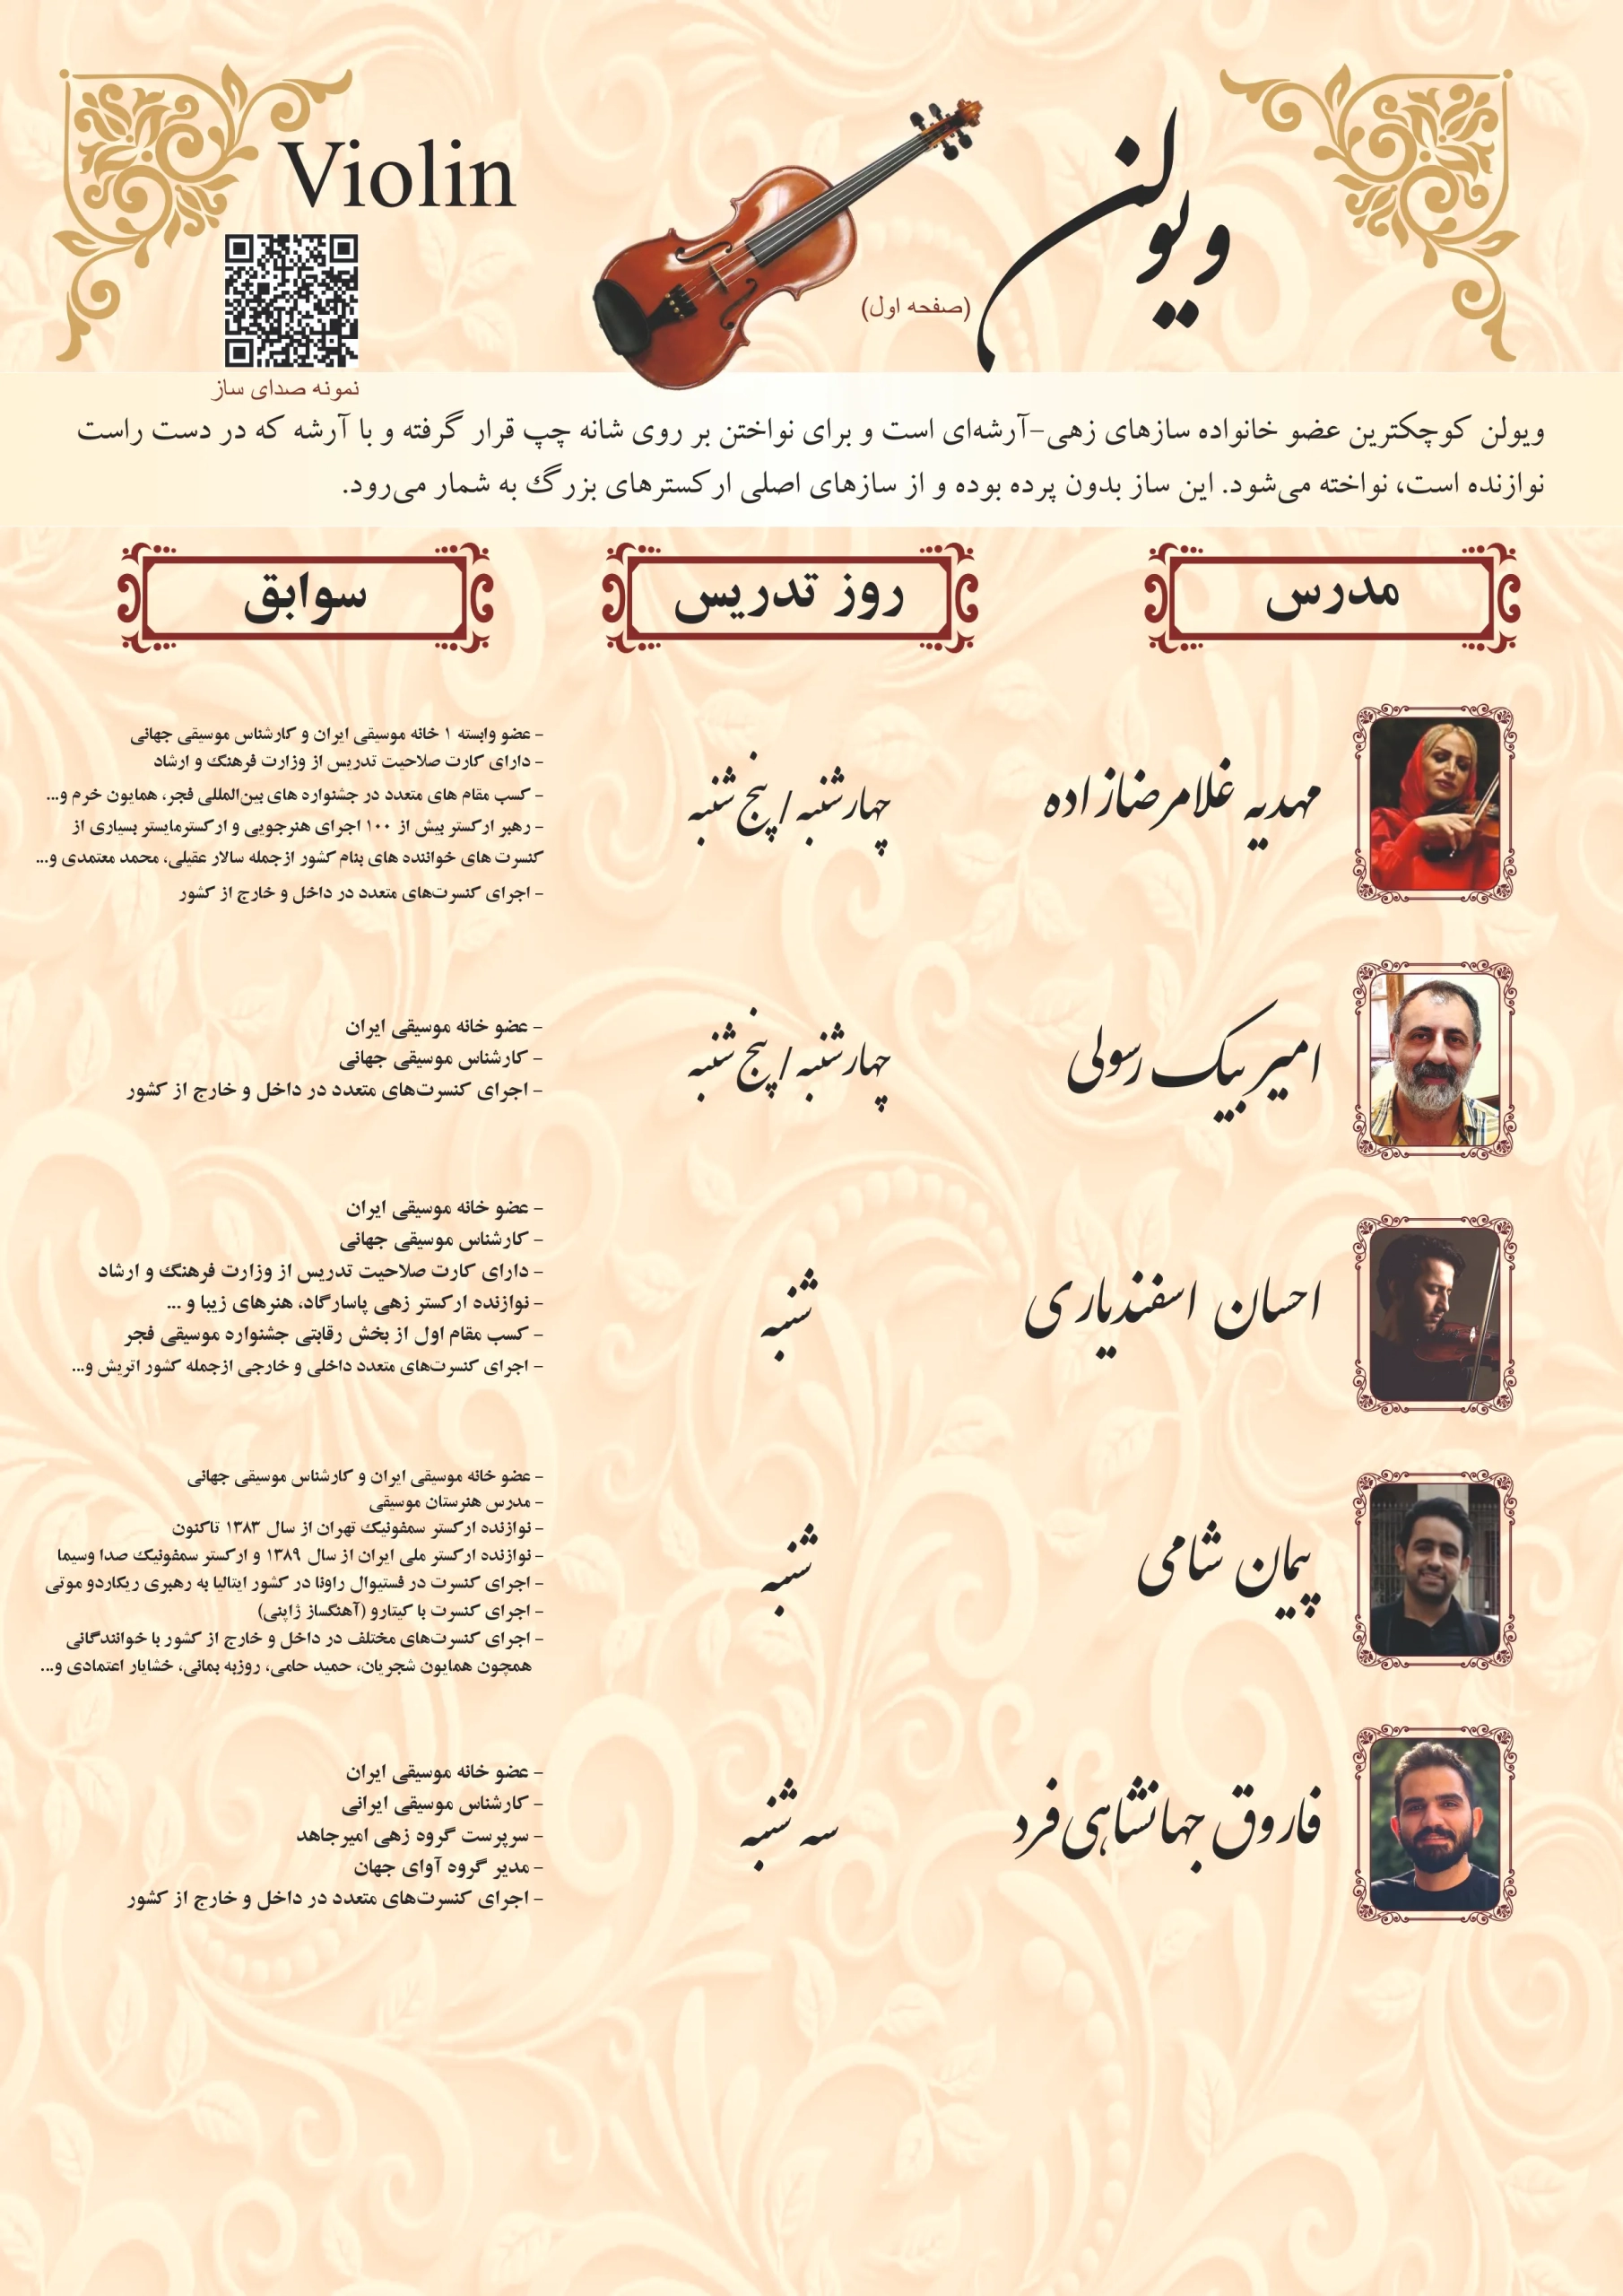 ویولن
Violin
(صفحه اول)
نمونه صدای ساز
ویولن کوچکترین عضو خانواده سازهای زهی-آرشه‌ای است و برای نواختن بر روی شانه چپ قرار گرفته و با آرشه که در دست راست
نوازنده است، نواخته می‌شود. این ساز بدون پرده بوده و از سازهای اصلی ارکسترهای بزرگ به شمار می‌رود.
مدرس
روز تدریس
سوابق
مهدیه غلامرضازاده
چهارشنبه / پنج شنبه
- عضو وابسته ۱ خانه موسیقی ایران و کارشناس موسیقی جهانی
- دارای کارت صلاحیت تدریس از وزارت فرهنگ و ارشاد
- کسب مقام های متعدد در جشنواره های بین‌المللی فجر، همایون خرم و...
- رهبر ارکستر بیش از ۱۰۰ اجرای هنرجویی و ارکسترمایستر بسیاری از
کنسرت های خواننده های بنام کشور ازجمله سالار عقیلی، محمد معتمدی و...
- اجرای کنسرت‌های متعدد در داخل و خارج از کشور
امیر بیک رسولی
چهارشنبه / پنج شنبه
- عضو خانه موسیقی ایران
- کارشناس موسیقی جهانی
- اجرای کنسرت‌های متعدد در داخل و خارج از کشور
احسان اسفندیاری
شنبه
- عضو خانه موسیقی ایران
- کارشناس موسیقی جهانی
- دارای کارت صلاحیت تدریس از وزارت فرهنگ و ارشاد
- نوازنده ارکستر زهی پاسارگاد، هنرهای زیبا و ...
- کسب مقام اول از بخش رقابتی جشنواره موسیقی فجر
- اجرای کنسرت‌های متعدد داخلی و خارجی ازجمله کشور اتریش و...
پیمان شامی
شنبه
- عضو خانه موسیقی ایران و کارشناس موسیقی جهانی
- مدرس هنرستان موسیقی
- نوازنده ارکستر سمفونیک تهران از سال ۱۳۸۳ تاکنون
- نوازنده ارکستر ملی ایران از سال ۱۳۸۹ و ارکستر سمفونیک صدا وسیما
- اجرای کنسرت در فستیوال راونا در کشور ایتالیا به رهبری ریکاردو موتی
- اجرای کنسرت با کیتارو (آهنگساز ژاپنی)
- اجرای کنسرت‌های مختلف در داخل و خارج از کشور با خوانندگانی
همچون همایون شجریان، حمید حامی، روزبه بمانی، خشایار اعتمادی و...
فاروق جهانشاهی فرد
سه شنبه
- عضو خانه موسیقی ایران
- کارشناس موسیقی ایرانی
- سرپرست گروه زهی امیرجاهد
- مدیر گروه آوای جهان
- اجرای کنسرت‌های متعدد در داخل و خارج از کشور